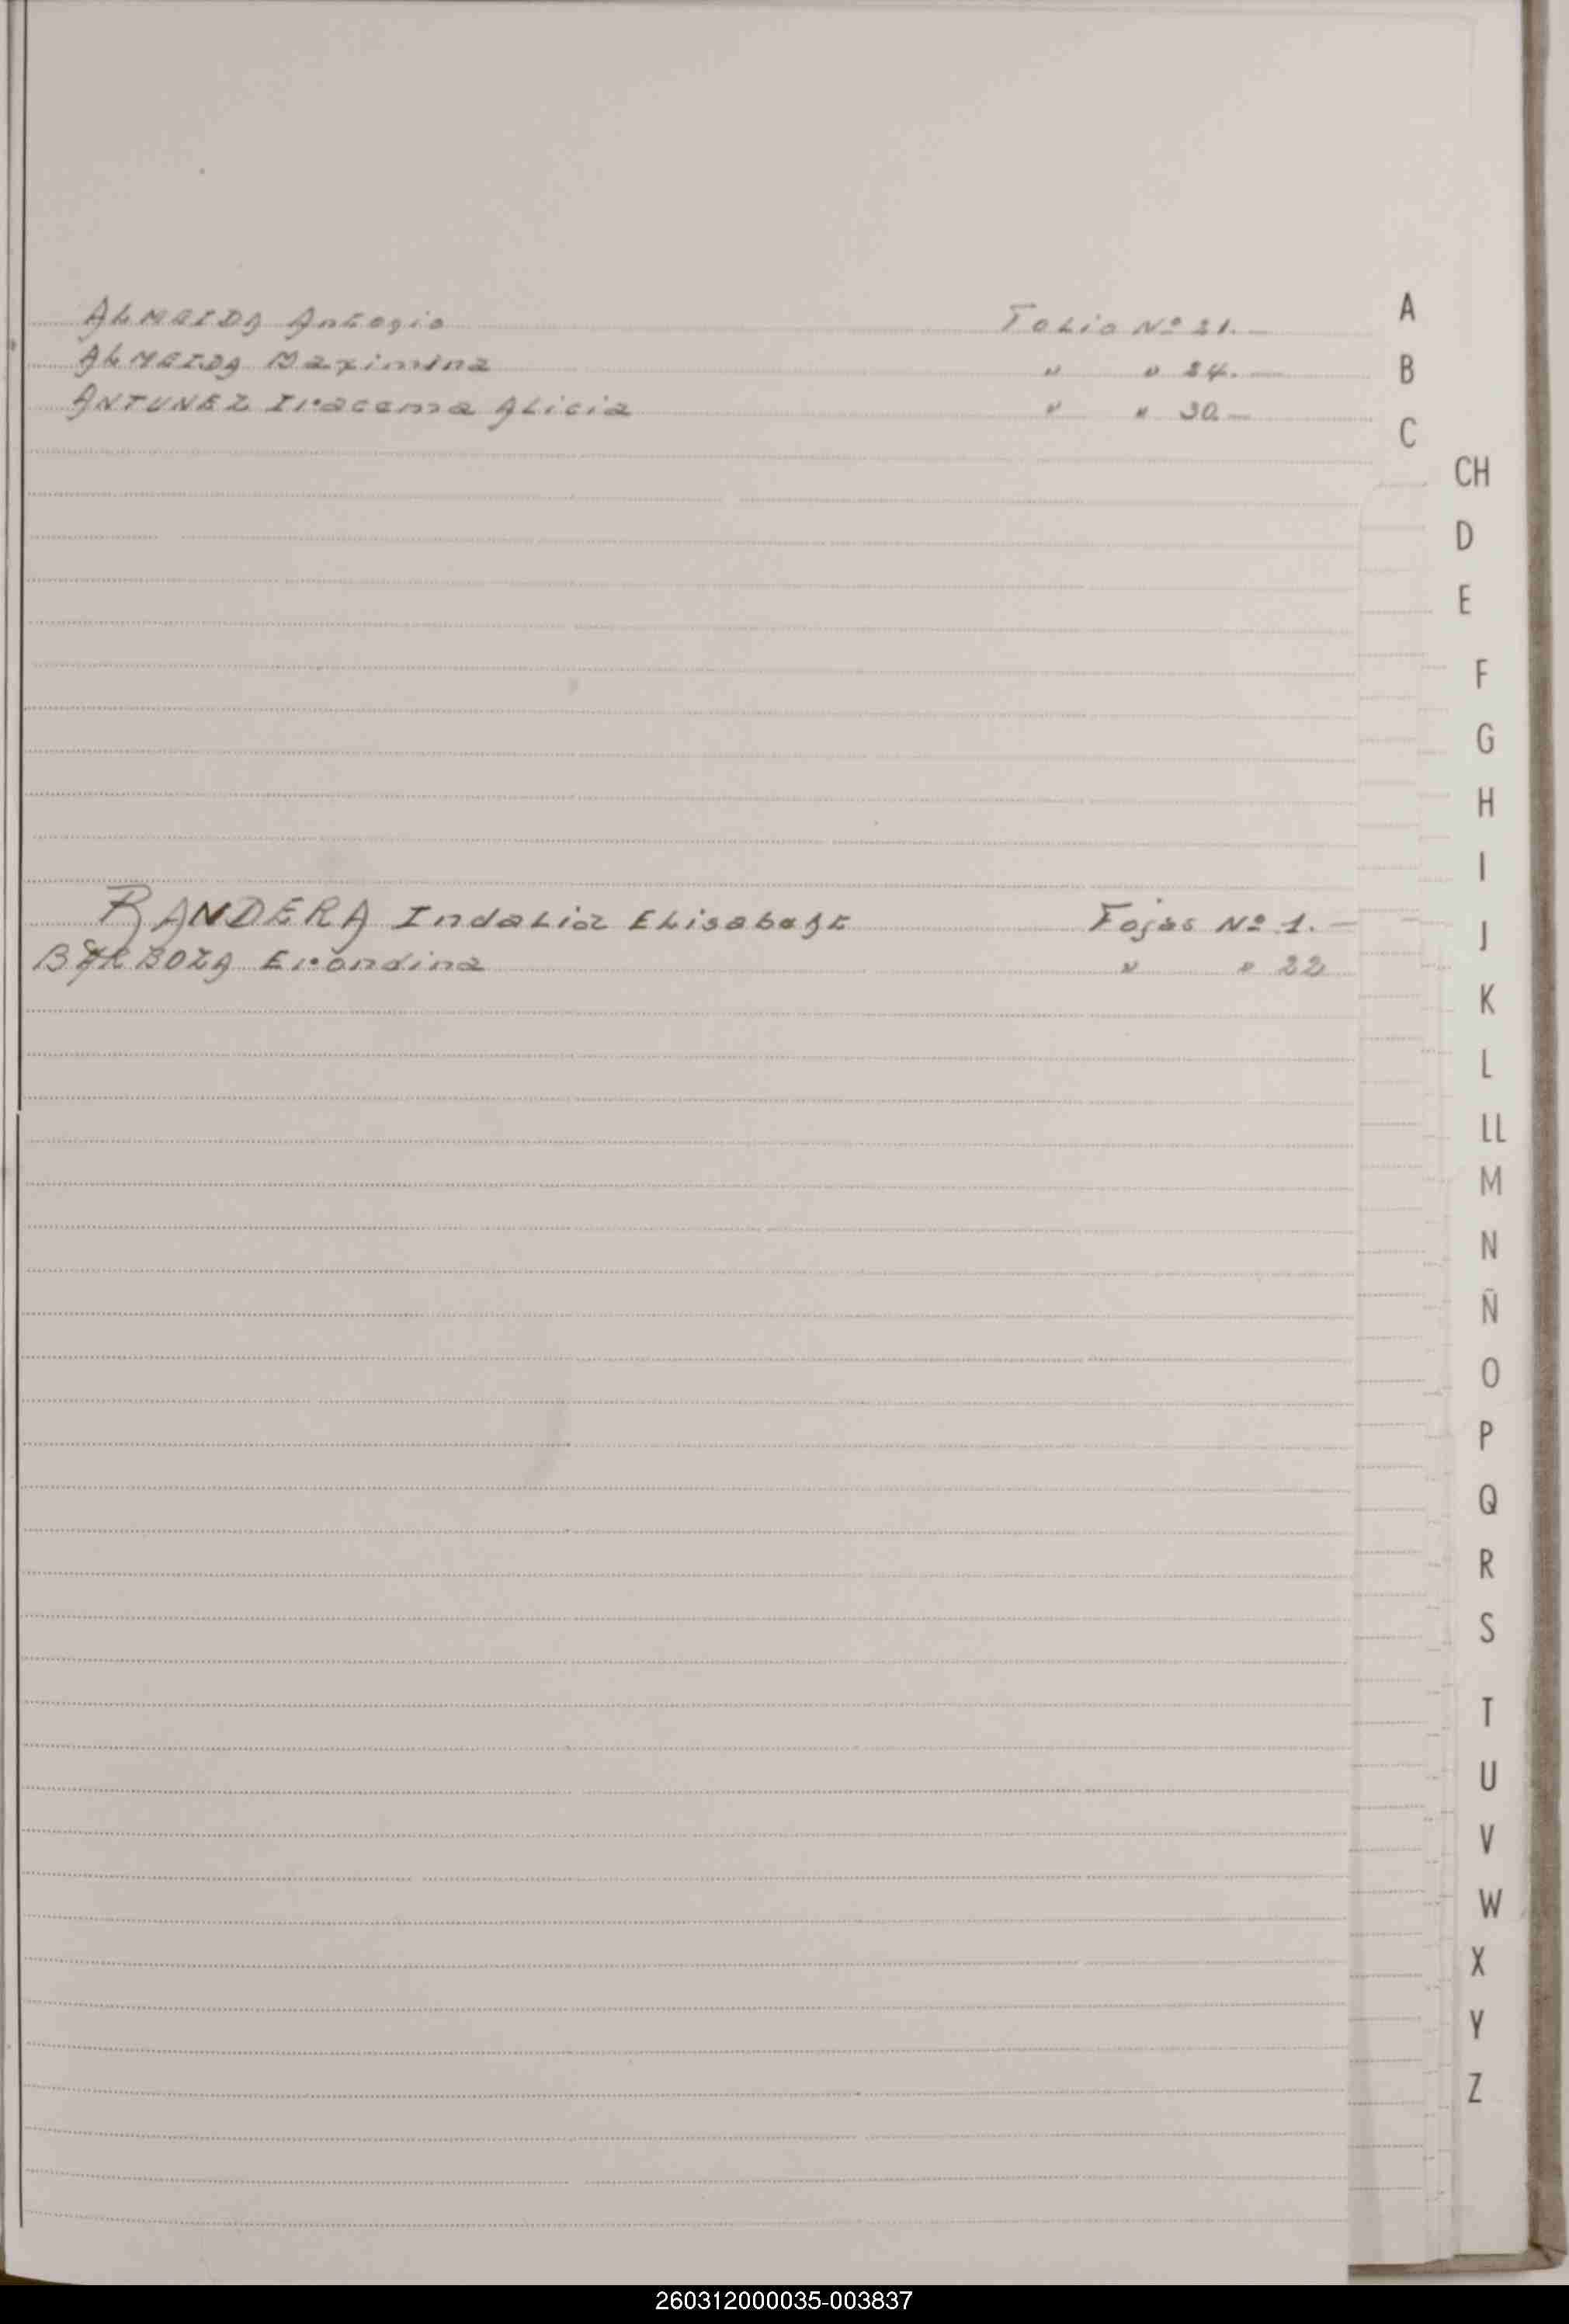 ALMEIDA Antonio Folio Nº 21.—
ALMEIDA Maximina " " 24.—
ANTUNEZ Iracema Alicia " " 30—
BANDERA Indalia Elisabeht Fojas Nº 1.—
BARBOZA Erondina " " 22
A
B
C
CH
D
E
F
G
H
I
J
K
L
LL
M
N
Ñ
O
P
Q
R
S
T
U
V
W
X
Y
Z
260312000035-003837